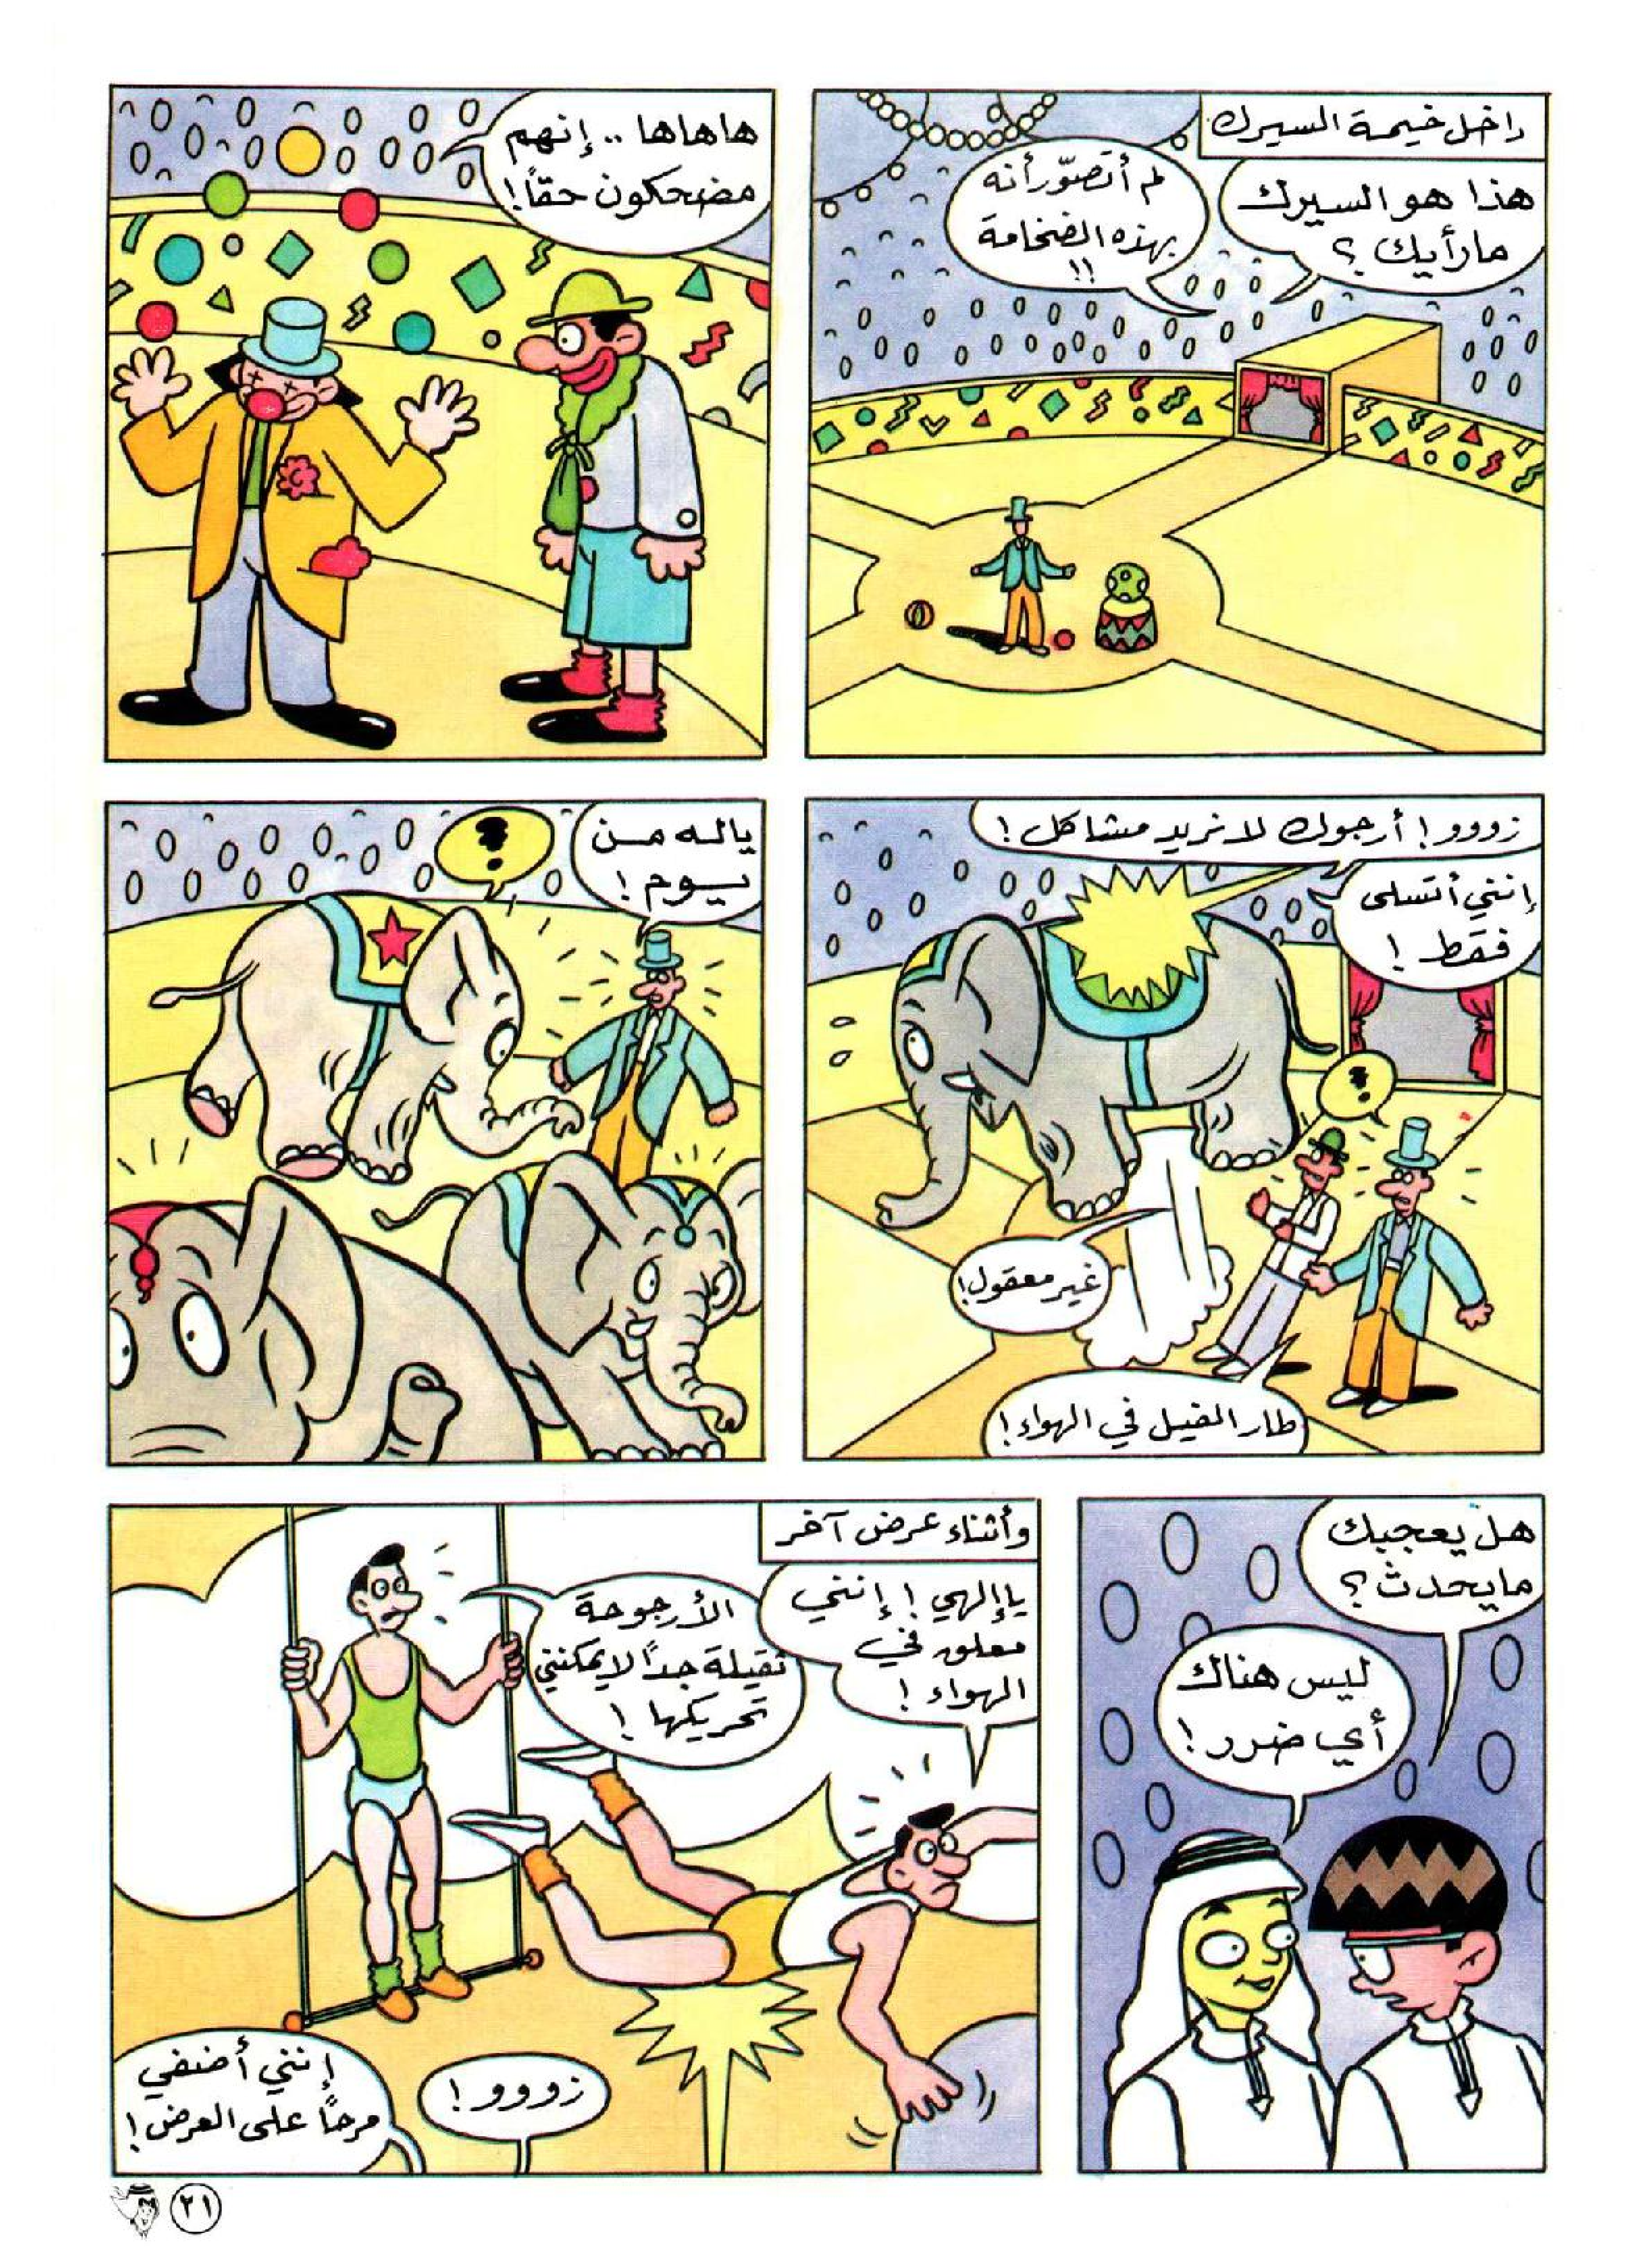 داخل خيمة السيرك
هذا هو السيرك
مارأيك ؟
لم أتصوّر أنه
بهذه الضخامة
!!
هاهاها .. إنهم
مضحكون حقاً !
زووو ! أرجوك لا نريد مشاكل !
إنني أتسلى
فقط !
غير معقول !
طار الفيل في الهواء !
ياله من
يوم !
هل يعجبك
مايحدث ؟
ليس هناك
أي ضرر !
وأثناء عرض آخر
يا إلهي ! إنني
معلق في
الهواء !
الأرجوحة
ثقيلة جداً لا يمكنني
تحريكها !
زووو !
إنني أضفي
مرحاً على العرض !
٢١